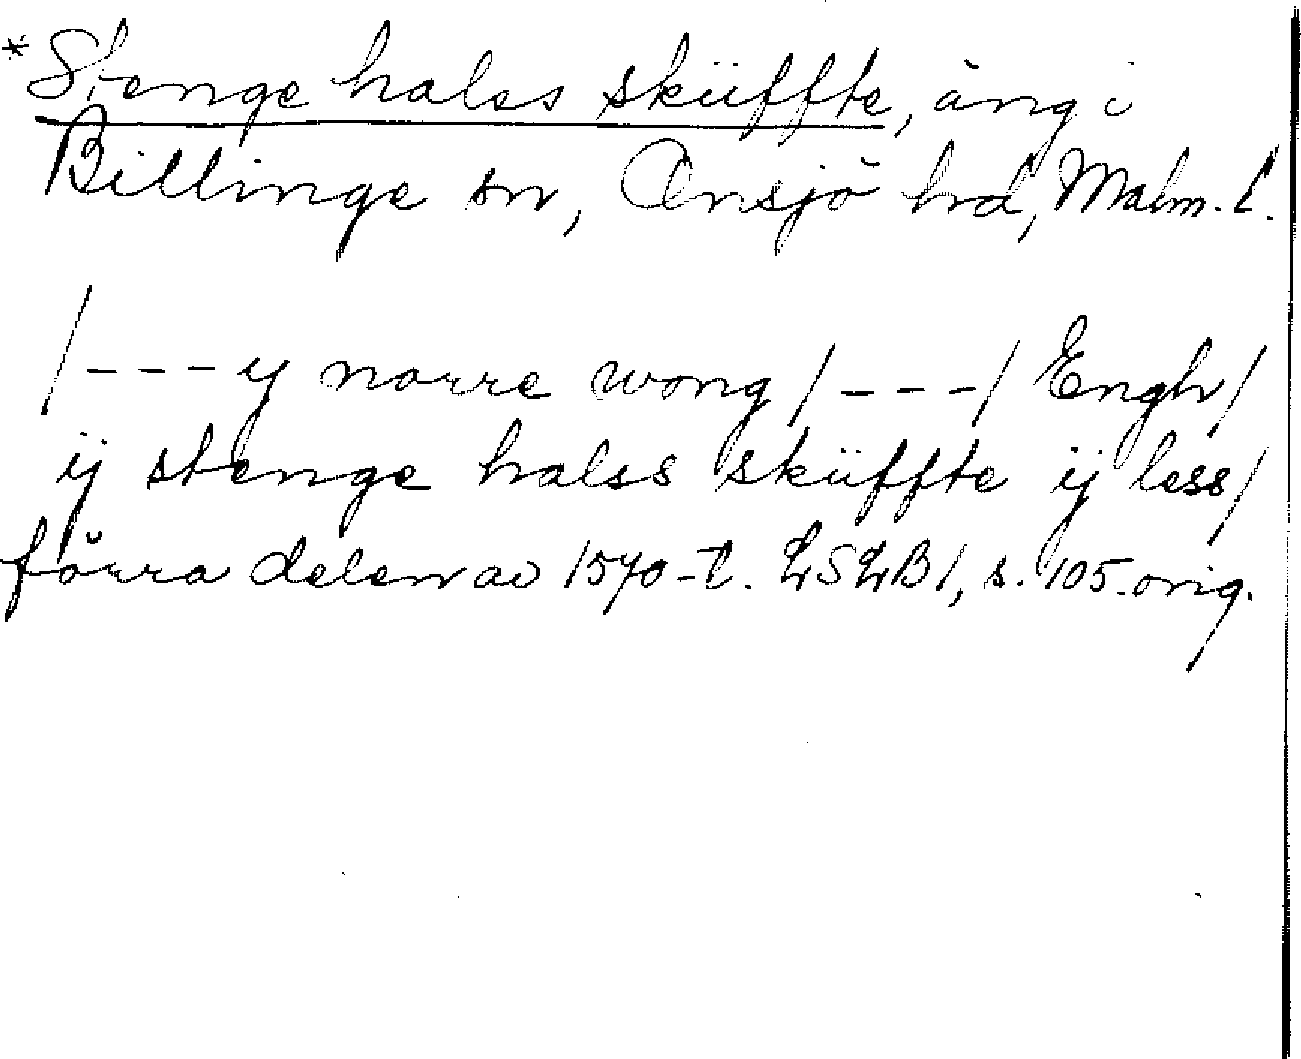 *Stenge halss sküffte, äng i
Billinge sn, Onsjö hrd, Malm. l.
/--- y norre wong /---/ Engh/
ij stenge halss sküffte ij less/
förra delen av 1570-t. LSLB 1, s. 105. orig.